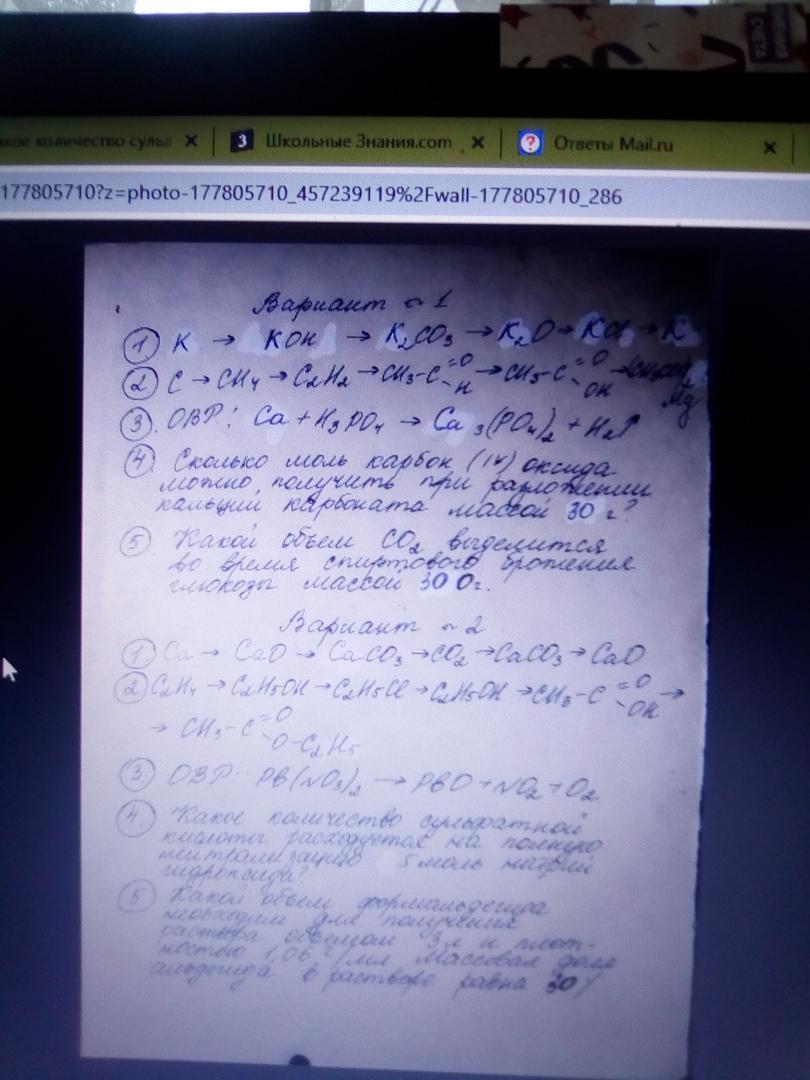 ШЕНИЯ
СЧЕТА
кое количество сульа × 3 Школьные Знания.com × ? Ответы Mail.ru ×
177805710?z=photo-177805710_457239119%2Fwall-177805710_286
Вариант ~ 1
① K → KOH → K₂CO₃ → K₂O → KCl → K
② C → CH₄ → C₂H₂ → CH₃-C =O -H → CH₃-C =O OH →
Mg
③. ОВР: Ca + H₃PO₄ → Ca₃(PO₄)₂ + H₂↑
④ Сколько моль карбон (IV) оксида
можно получить при разложении
кальций карбоната массой 30 г?
⑤ Какой объем CO₂ выделится
во время спиртового брожения
глюкозы массой 300г.
Вариант ~ 2
①. Ca → CaO → CaCO₃ → CO₂ → CaCO₃ → CaO
② C₂H₄ → C₂H₅OH → C₂H₅Cl → C₂H₅OH → CH₃-C =O OH →
→ CH₃-C =O -O-C₂H₅
③. ОВР PB(NO₃)₂ → PBO + NO₂ + O₂
④. Какое количество сульфатной
кислоты расходуется на полную
нейтрализацию 5 моль натрий
гидроксида?
⑤ Какой объем формальдегида
необходим для получения
раствора объемом 3 л и плот-
ностью 1,06 г/мл Массовая доля
альдегида в растворе равна 30%